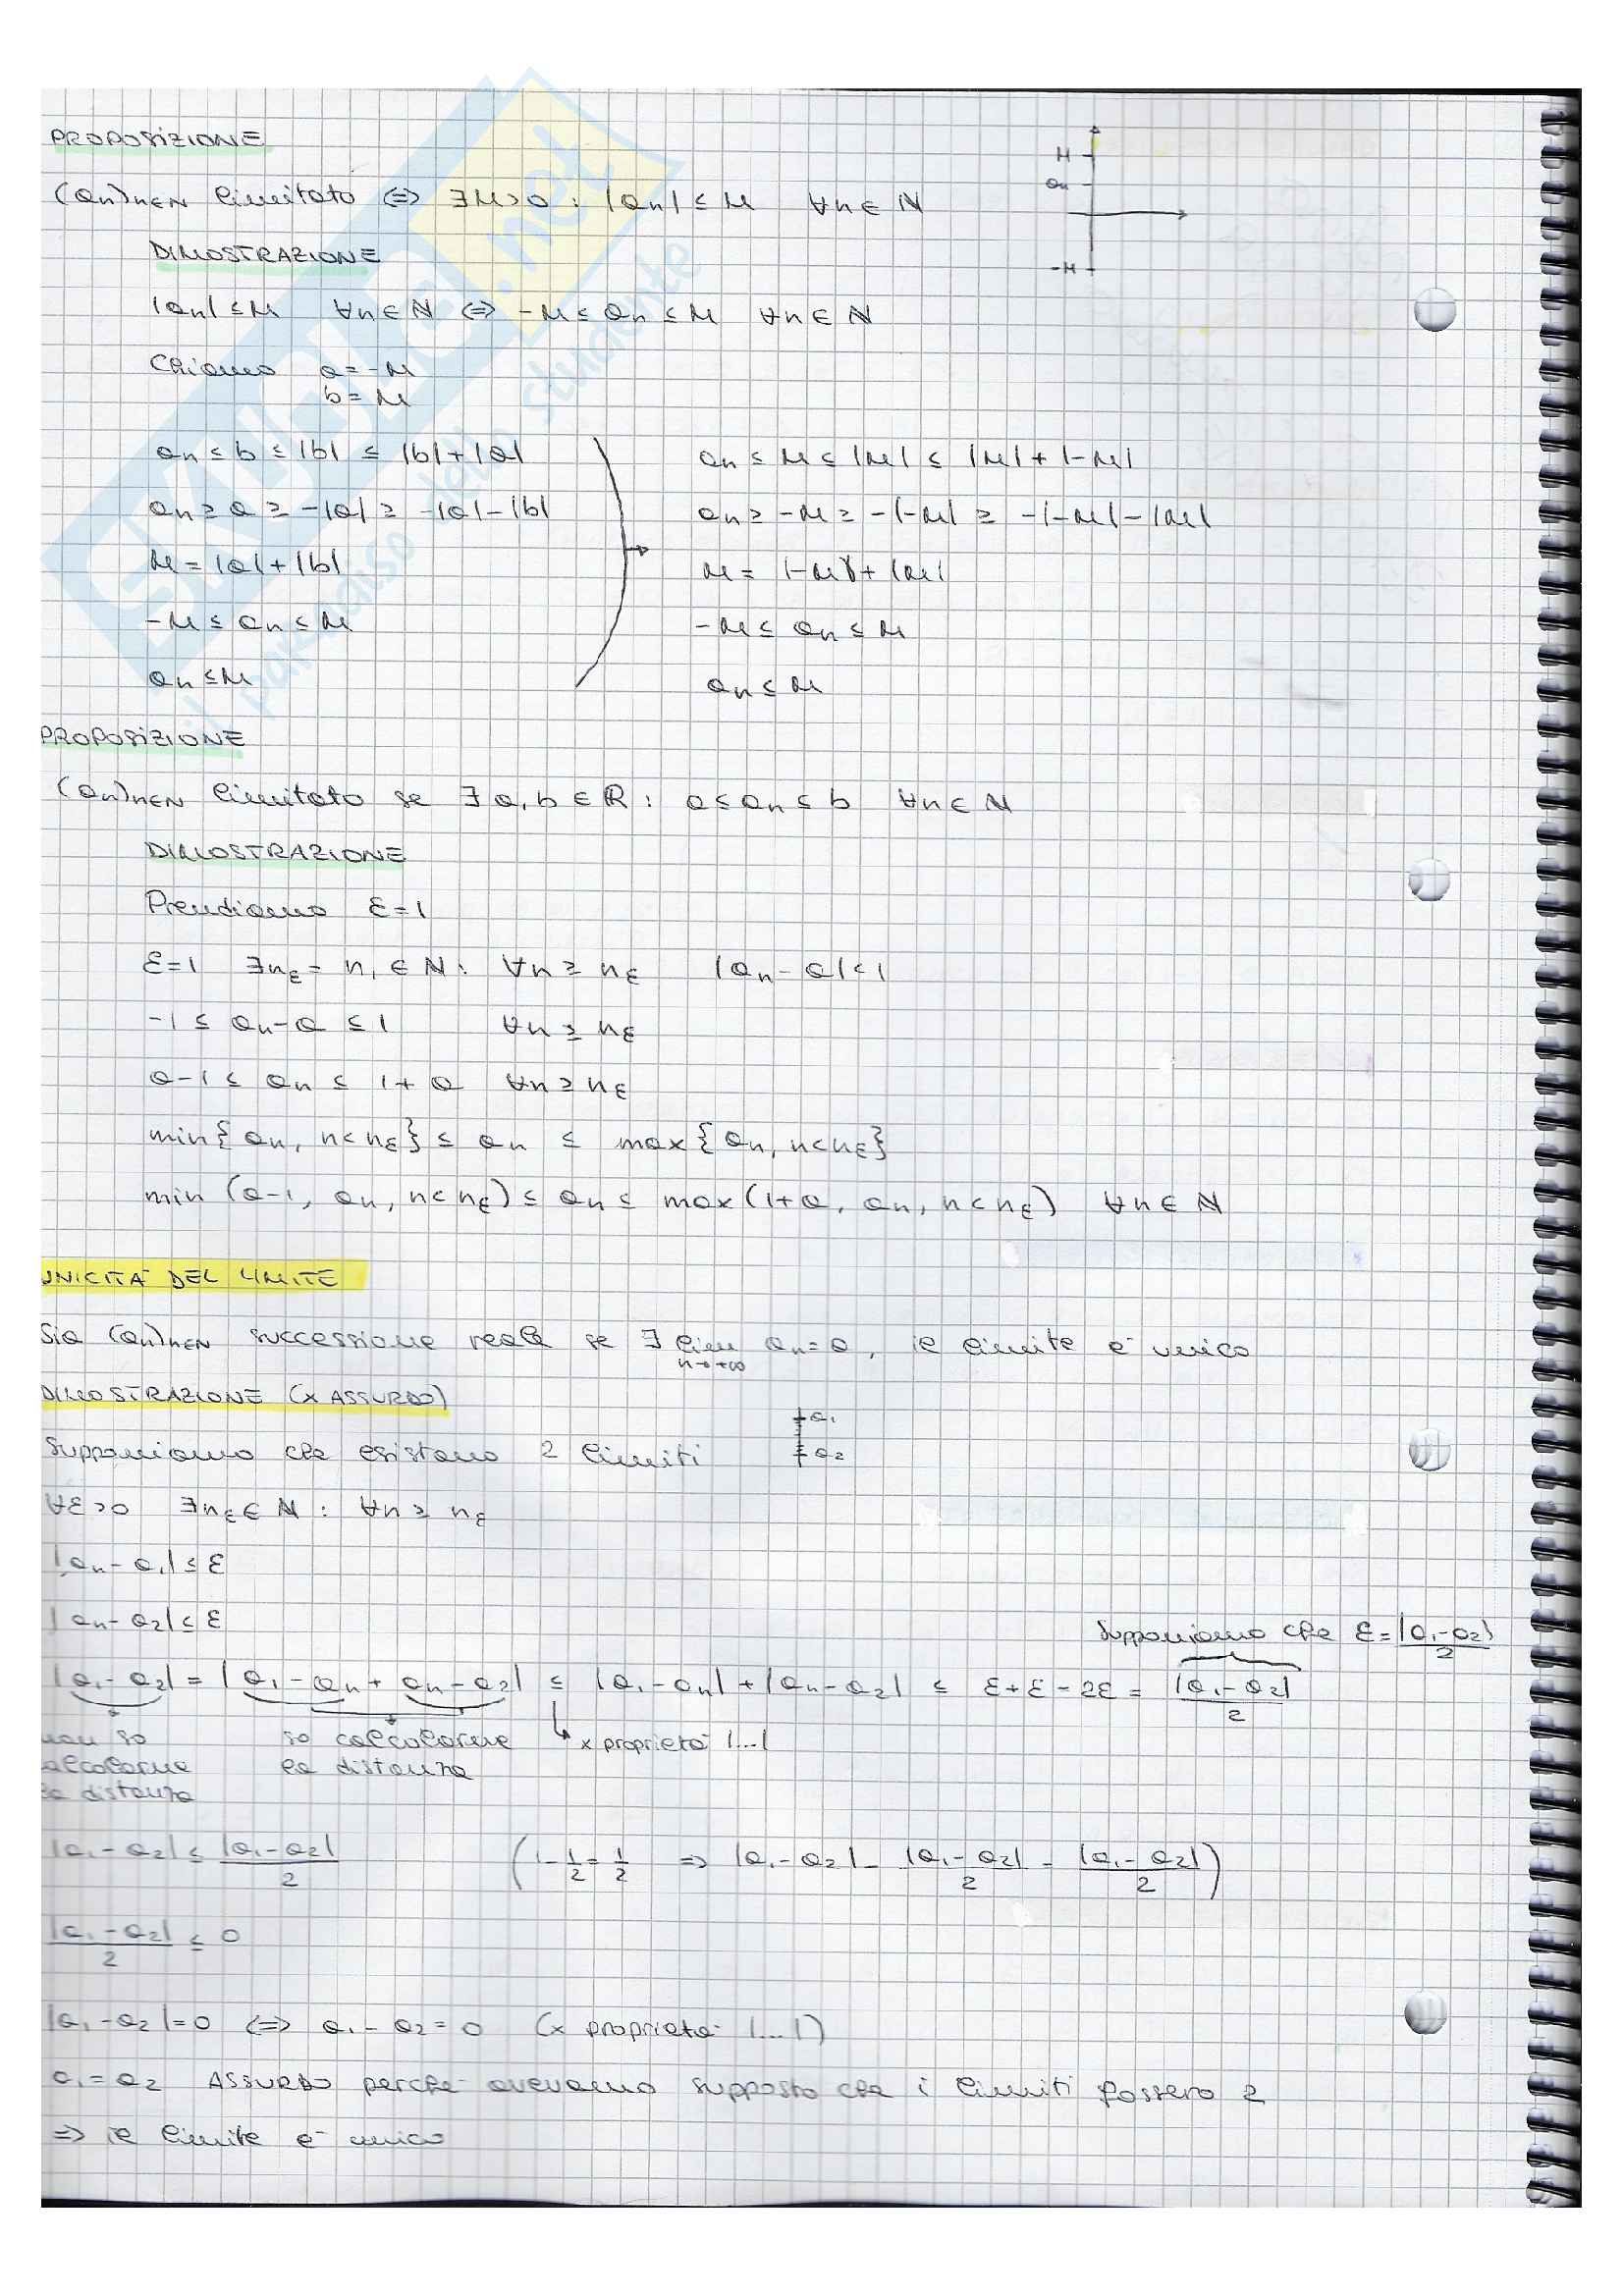 PROPOSIZIONE
(an)n∈N limitata ⇔ ∃M>0 : |an| ≤ M ∀n∈N
M
an
-M
DIMOSTRAZIONE
|an| ≤ M ∀n∈N ⇔ -M ≤ an ≤ M ∀n∈N
Chiamo a = -M
b = M
an ≤ b ≤ |b| ≤ |b|+|a|
an ≥ a ≥ -|a| ≥ -|a|-|b|
M = |a|+|b|
-M ≤ an ≤ M
an ≤ M
an ≤ M ≤ |M| ≤ |M| + |-M|
an ≥ -M ≥ -|-M| ≥ -|-M|-|M|
M = |-M|+|M|
-M ≤ an ≤ M
an ≤ M
PROPOSIZIONE
(an)n∈N limitata se ∃ a,b ∈ R : a ≤ an ≤ b ∀n∈N
DIMOSTRAZIONE
Prendiamo ε=1
ε=1 ∃nε = n1 ∈ N : ∀n ≥ nε |an - a|<1
-1 ≤ an-a ≤ 1 ∀n ≥ nε
a-1 ≤ an ≤ 1+a ∀n ≥ nε
min{an, n<nε} ≤ an ≤ max{an, n<nε}
min (a-1, an, n<nε) ≤ an ≤ max(1+a, an, n<nε) ∀n∈N
UNICITA' DEL LIMITE
Sia (an)n∈N successione reale se ∃ lim an = a, il limite è unico
n→+∞
DIMOSTRAZIONE (x ASSURDO)
Supponiamo che esistano 2 limiti
a1
a2
∀ε>0 ∃nε∈N : ∀n ≥ nε
|an - a1| ≤ ε
|an - a2| ≤ ε
Supponiamo che ε = |a1-a2|/2
|a1 - a2| = |a1 - an + an - a2| ≤ |a1 - an| + |an - a2| ≤ ε+ε = 2ε = |a1 - a2|/2
non so calcolarne la distanza
so calcolarne la distanza
x proprietà |...|
|a1 - a2| ≤ |a1 - a2|/2
(1 - 1/2 = 1/2 ⇒ |a1 - a2| - |a1 - a2|/2 = |a1 - a2|/2)
|a1 - a2|/2 ≤ 0
|a1 - a2| = 0 ⇔ a1 - a2 = 0 (x proprietà |...|)
a1 = a2 ASSURDO perchè avevamo supposto che i limiti fossero 2
⇒ il limite è unico